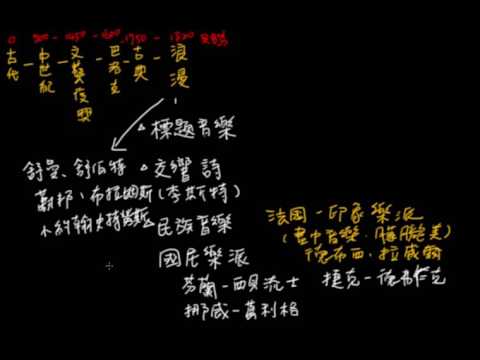 500 - 1450 - 1600 - 1750 - 1820
古代 - 中世紀 - 文藝復興 - 巴洛克 - 古典 - 浪漫
△標題音樂
舒曼、舒伯特
△交響詩
蕭邦、布拉姆斯(李斯特)
小約翰史特勞斯
民族音樂
國民樂派
芬蘭-西貝流士
挪威-葛利格
捷克-德弗札克
法國-印象樂派
(畫中音樂
德布西、拉威爾